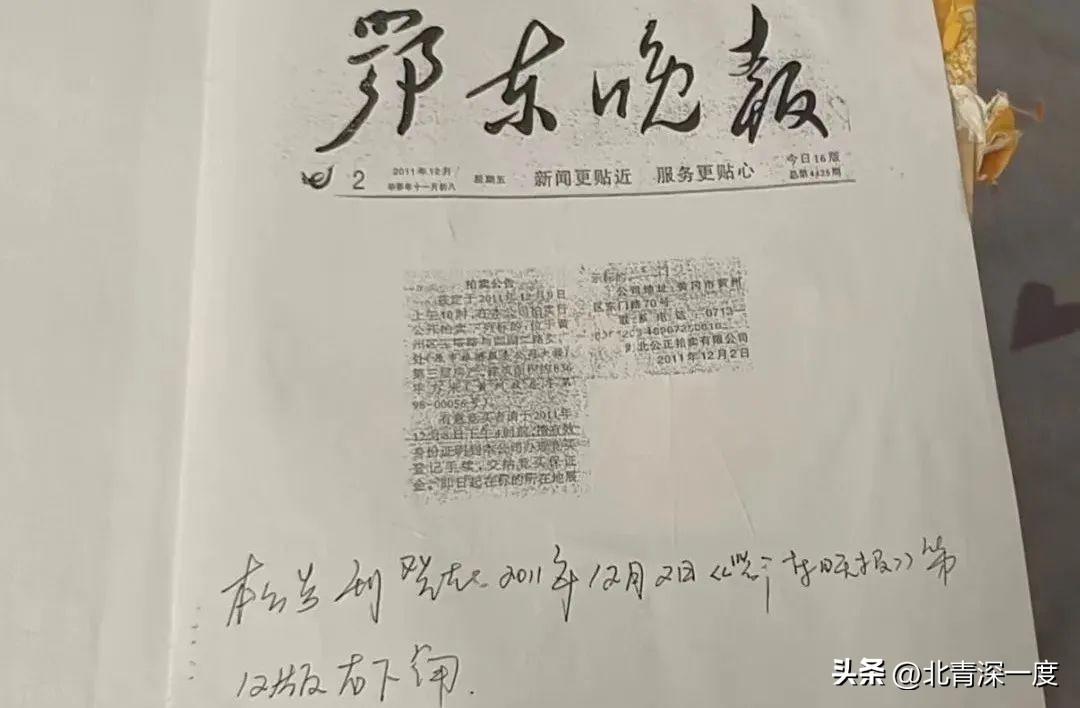 鄂东晚报
2 2011年12月 星期五 新闻更贴近 服务更贴心 今日16版
辛卯年十一月初八 总第4425期
拍卖公告
兹定于2011年12月9日
上午10时,在本公司拍卖行
公开拍卖下列标的:位于黄
州区
处
第三层房产,建筑面积约836
平方米
98-00056号)。
有意竞买者请于2011年
12月8日下午4时前,携有效
身份证明到本公司办理竞买
登记手续,交纳竞买保证
金。即日起在标的所在地展
示标的。
公司地址:黄冈市黄州
区东门路70号
联系电话:0713—
北公正拍卖有限公司
2011年12月2日
本公告刊登在2011年12月2日《鄂东晚报》第
12版右下角.
头条 @北青深一度